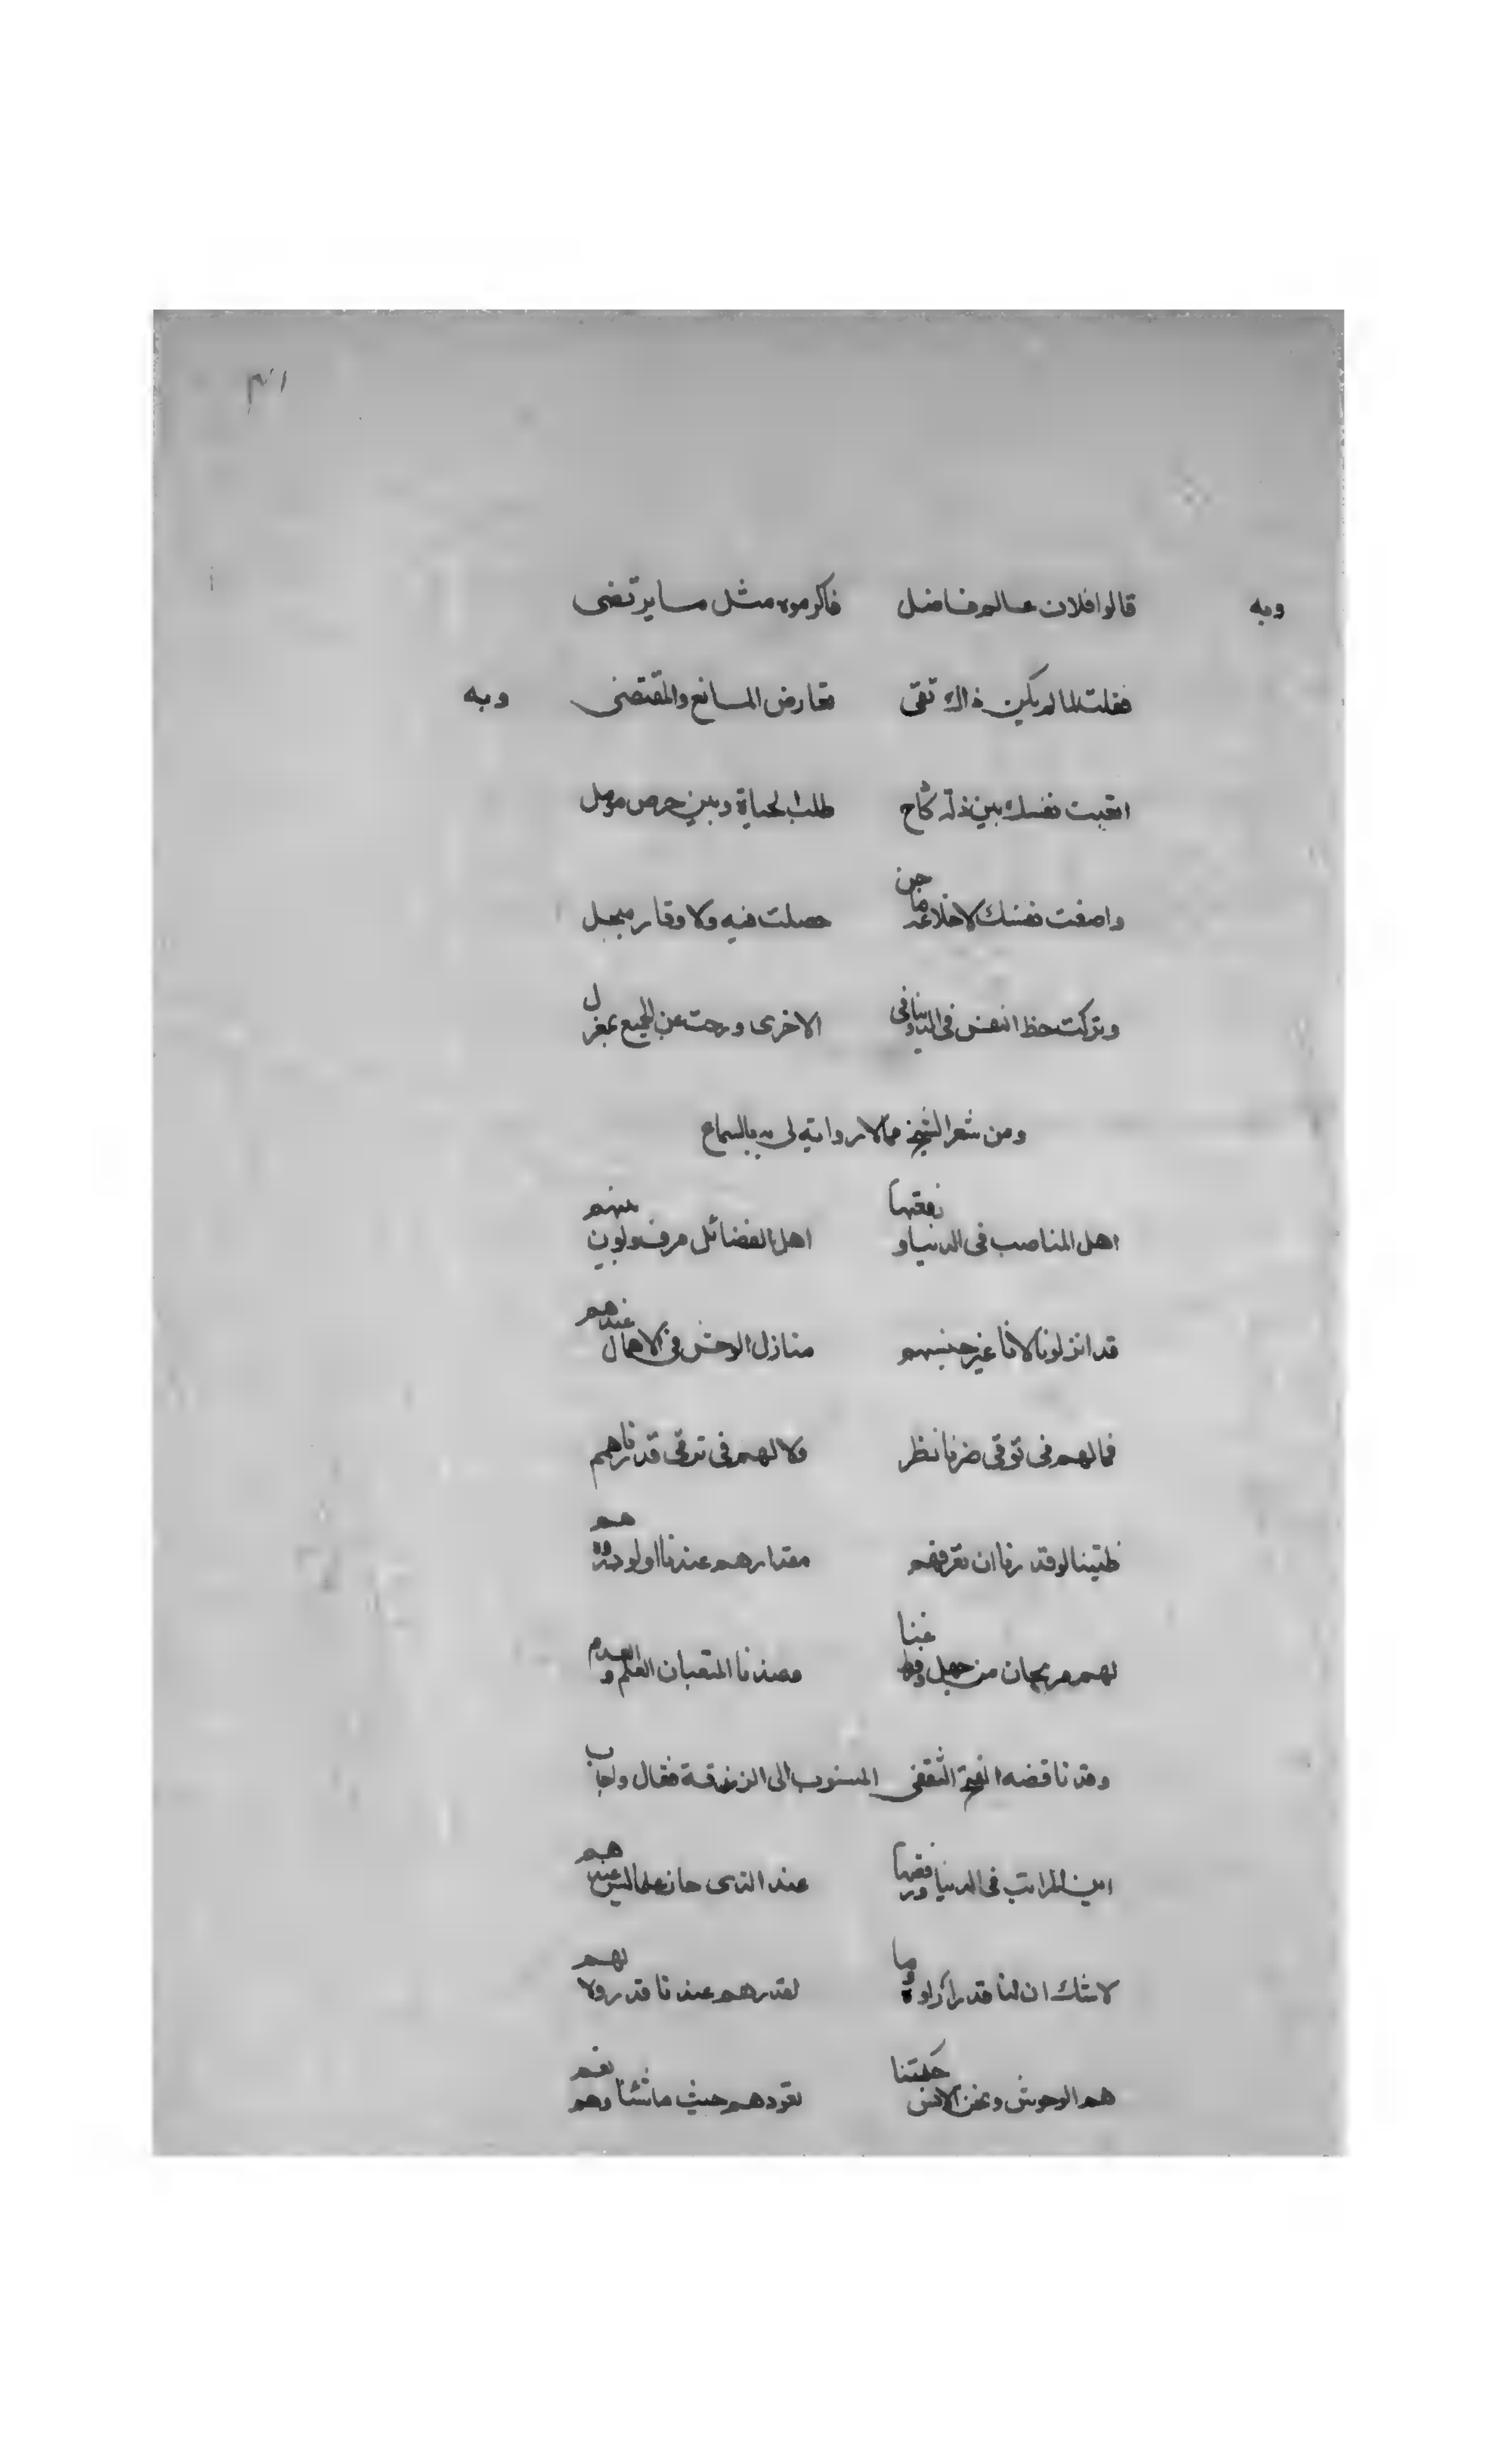 وبه قالوا فلان عالم فاضل فاكرموه مثل ما يرتضى
فقلت لما لم يكن ذا تقى تعارض المانع والمقتضى وبه
اتعبت نفسك بين ذلة كادح طلب الحياة وبين حرص مؤمل
واضعت نفسك لا خلاعة ماجن حصلت فيه ولا وقار مبجل
وتركت حظ النفس في الدنيا وفي الاخرى ورحت عن الجميع بمعزل
ومن شعر الشيخ مما لا رواية لى به بالسماع
اهل المناصب في الدنيا ورفعتها اهل الفضائل مرذولون بينهم
قد انزلونا لانا غير جنسهم منازل الوحش في الاهمال عندهم
فما لهم في توقى ضرنا نظر ولا لهم في ترقى قدرنا همم
فليتنا لو قدرنا ان نعرفهم مقدارهم عندنا او لو دروه هم
لهم مريحان من جهل وفرط غنا وعندنا المتعبان العلم والعدم
وقد ناقضه الفتح الثقفي المنسوب الى الزندقة فقال واجاب
اين المراتب في الدنيا ورفعتها عند الذى حاز علما ليس عندهم
لا شك ان لنا قدرا راوه وما لقدرهم عندنا قدر ولا لهم
هم الوحوش ونحن الانس حكمتنا نقودهم حيث ما شئنا وهم نعم